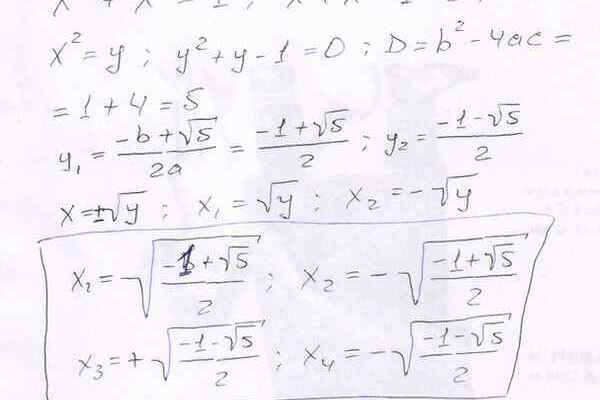 x² = y ; y² + y - 1 = 0 ; D = b² - 4ac =
= 1 + 4 = 5
y₁ = (-b + √5)/2a = (-1 + √5)/2 ; y₂ = (-1 - √5)/2
x = ±√y ; x₁ = √y ; x₂ = -√y
x₁ = -√((-1 + √5)/2) ; x₂ = -√((-1 + √5)/2)
x₃ = +√((-1 - √5)/2) ; x₄ = -√((-1 - √5)/2)